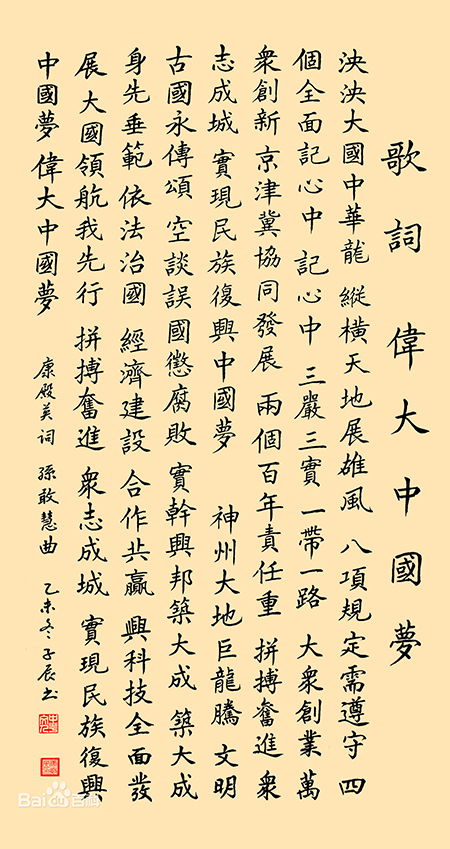 歌詞 偉大中國夢
泱泱大國中華龍 縱橫天地展雄風 八項規定需遵守 四
個全面記心中 記心中 三嚴三實 一帶一路 大衆創業 萬
衆創新 京津冀協同發展 兩個百年責任重 拼搏奮進 衆
志成城 實現民族復興中國夢 神州大地巨龍騰 文明
古國永傳頌 空談誤國懲腐敗 實幹興邦築大成 築大成
身先垂範 依法治國 經濟建設 合作共贏 興科技全面發
展 大國領航我先行 拼搏奮進 衆志成城 實現民族復興
中國夢 偉大中國夢 康殿美詞 孫敢慧曲 乙未冬子辰书
Bai百科